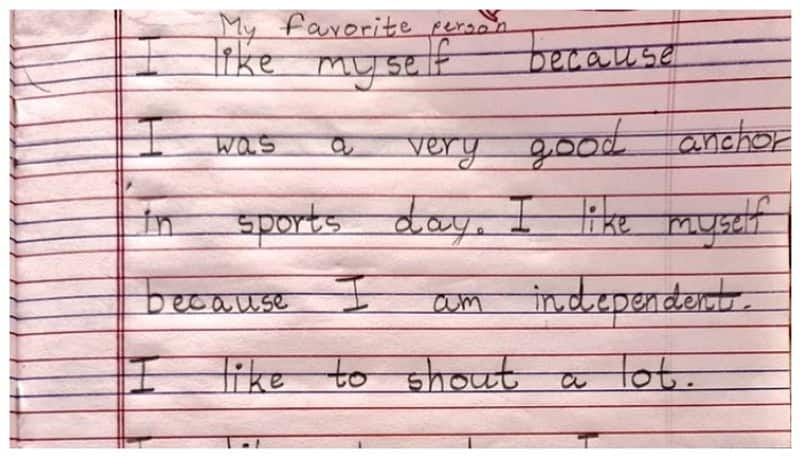 My favorite person
I like myself because
I was a very good anchor
in sports day. I like myself
because I am independent.
I like to shout a lot.